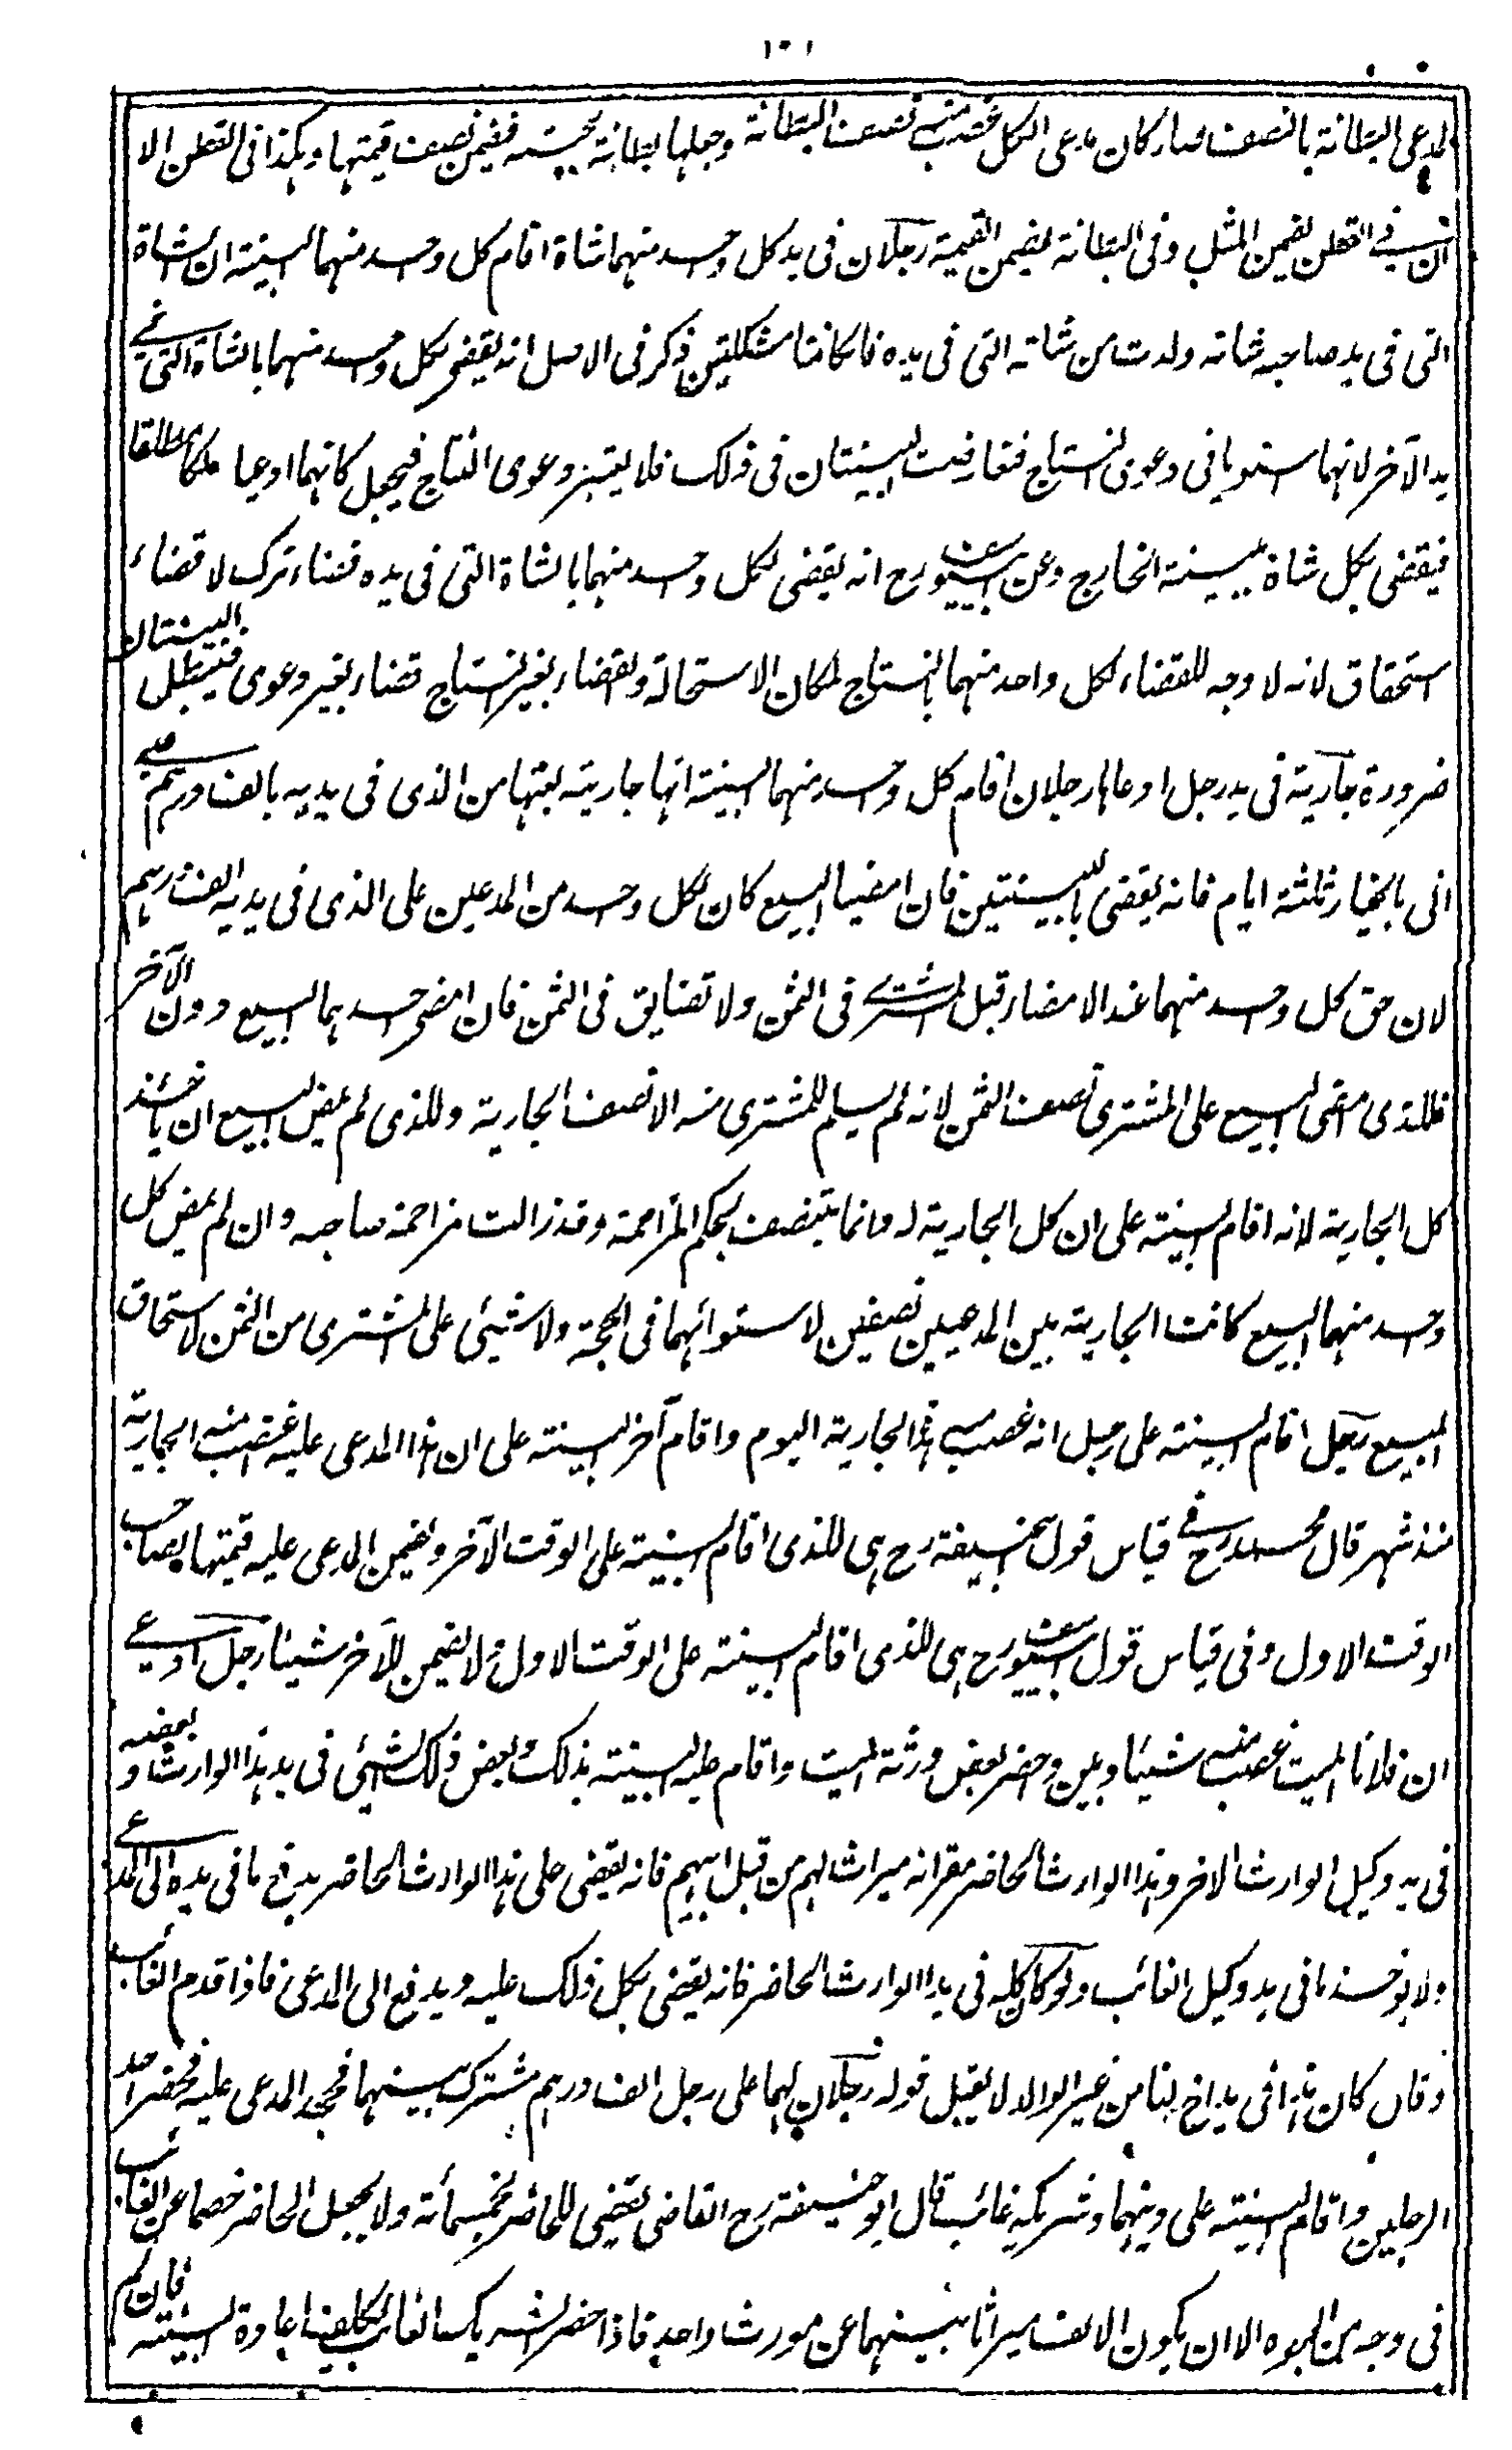 ١٠١
لمدعى البطانة بالنصف فصار كان مدعى الكل غصب منه نصف البطانة وجعلها بطانة لجبته فيضمن نصف قيمتها وهكذا فى القطن الا
ان فى القطن يضمن المثل وفى البطانة يضمن القيمة رجلان فى يد كل واحد منهما شاة اقام كل واحد منهما البينة ان الشاة
التى فى يد صاحبه شاته ولدت من شاته التى فى يده فان كانتا مشكلتين ذكر فى الاصل انه يقضى لكل واحد منهما بالشاة التى فى
يد الآخر لانهما استويا فى دعوى النتاج فتعارضت البينتان فى ذلك فلا يعتبر دعوى النتاج فيجعل كانهما ادعيا ملكا مطلقا
فيقضى بكل شاة ببينة الخارج وعن ابى يوسف رح انه يقضى لكل واحد منهما بالشاة التى فى يده قضاء ترك لا قضاء
استحقاق لانه لا وجه للقضاء لكل واحد منهما بالنتاج لمكان الاستحالة والقضاء بغير النتاج قضاء بغير دعوى فيبطل البينتان
ضرورة جارية فى يد رجل ادعاها رجلان اقام كل واحد منهما البينة انها جاريته بعتها من الذى فى يديه بالف درهم على
انى بالخيار ثلثة ايام فانه يقضى بالبينتين فان امضيا البيع كان لكل واحد من المدعين على الذى فى يديه الف درهم
لان حق كل واحد منهما عند الامضاء قبل المشترى فى الثمن ولا تضايق فى الثمن فان امضى احدهما البيع دون الآخر
فللذى امضى البيع على المشترى نصف الثمن لانه لم يسلم للمشترى منه الا نصف الجارية وللذى لم يمض البيع ان ياخذ
كل الجارية لانه اقام البينة على ان كل الجارية له وانما يتنصف بحكم المزاحمة وقد زالت مزاحمة صاحبه وان لم يمض كل
واحد منهما البيع كانت الجارية بين المدعيين نصفين لاستوائهما فى الحجة ولا شيئى على المشترى من الثمن لاستحقاق
المبيع رجل اقام البينة على رجل انه غصب منه هذه الجارية اليوم واقام آخر البينة على ان هذا المدعى عليه غصب منه الجارية
منذ شهر قال محمد رح فى قياس قول ابى حنيفة رح هى للذى اقام البينة على الوقت الآخر ويضمن المدعى عليه قيمتها لصاحب
الوقت الاول وفى قياس قول ابى يوسف رح هى للذى اقام البينة على الوقت الاول ولا يضمن للآخر شيئا رجل ادعى
ان فلانا الميت غصب منه شيئا وبين وحضر بعض ورثة الميت واقام عليه البينة بذلك وبعض ذلك الشيئى فى يد هذا الوارث وبعضه
فى يد وكيل الوارث الآخر وهذا الوارث الحاضر مقر انه ميراث لهم من قبل ابيهم فانه يقضى على هذا الوارث الحاضر بدفع ما فى يده الى المدعى
ولا يؤخذ ما فى يد وكيل الغائب ولو كان كله فى يد الوارث الحاضر فانه يقضى بكل ذلك عليه ويدفع الى المدعى فاذا قدم الغائب
وقال كان هذا فى يد اخ لنا من غير الوالد لا يقبل قوله رجلان لهما على رجل الف درهم مشترك بينهما فجحد المدعى عليه فحضر احد
الرجلين واقام البينة على دينهما وشريكه غائب قال ابو حنيفة رح القاضى يقضى للحاضر بخمسمائة ولا يجعل الحاضر خصما عن الغائب
فى وجه من الوجوه الا ان يكون الالف ميراثا بينهما عن مورث واحد فاذا حضر الشريك الغائب كلفنا اعادة البينة فان لم